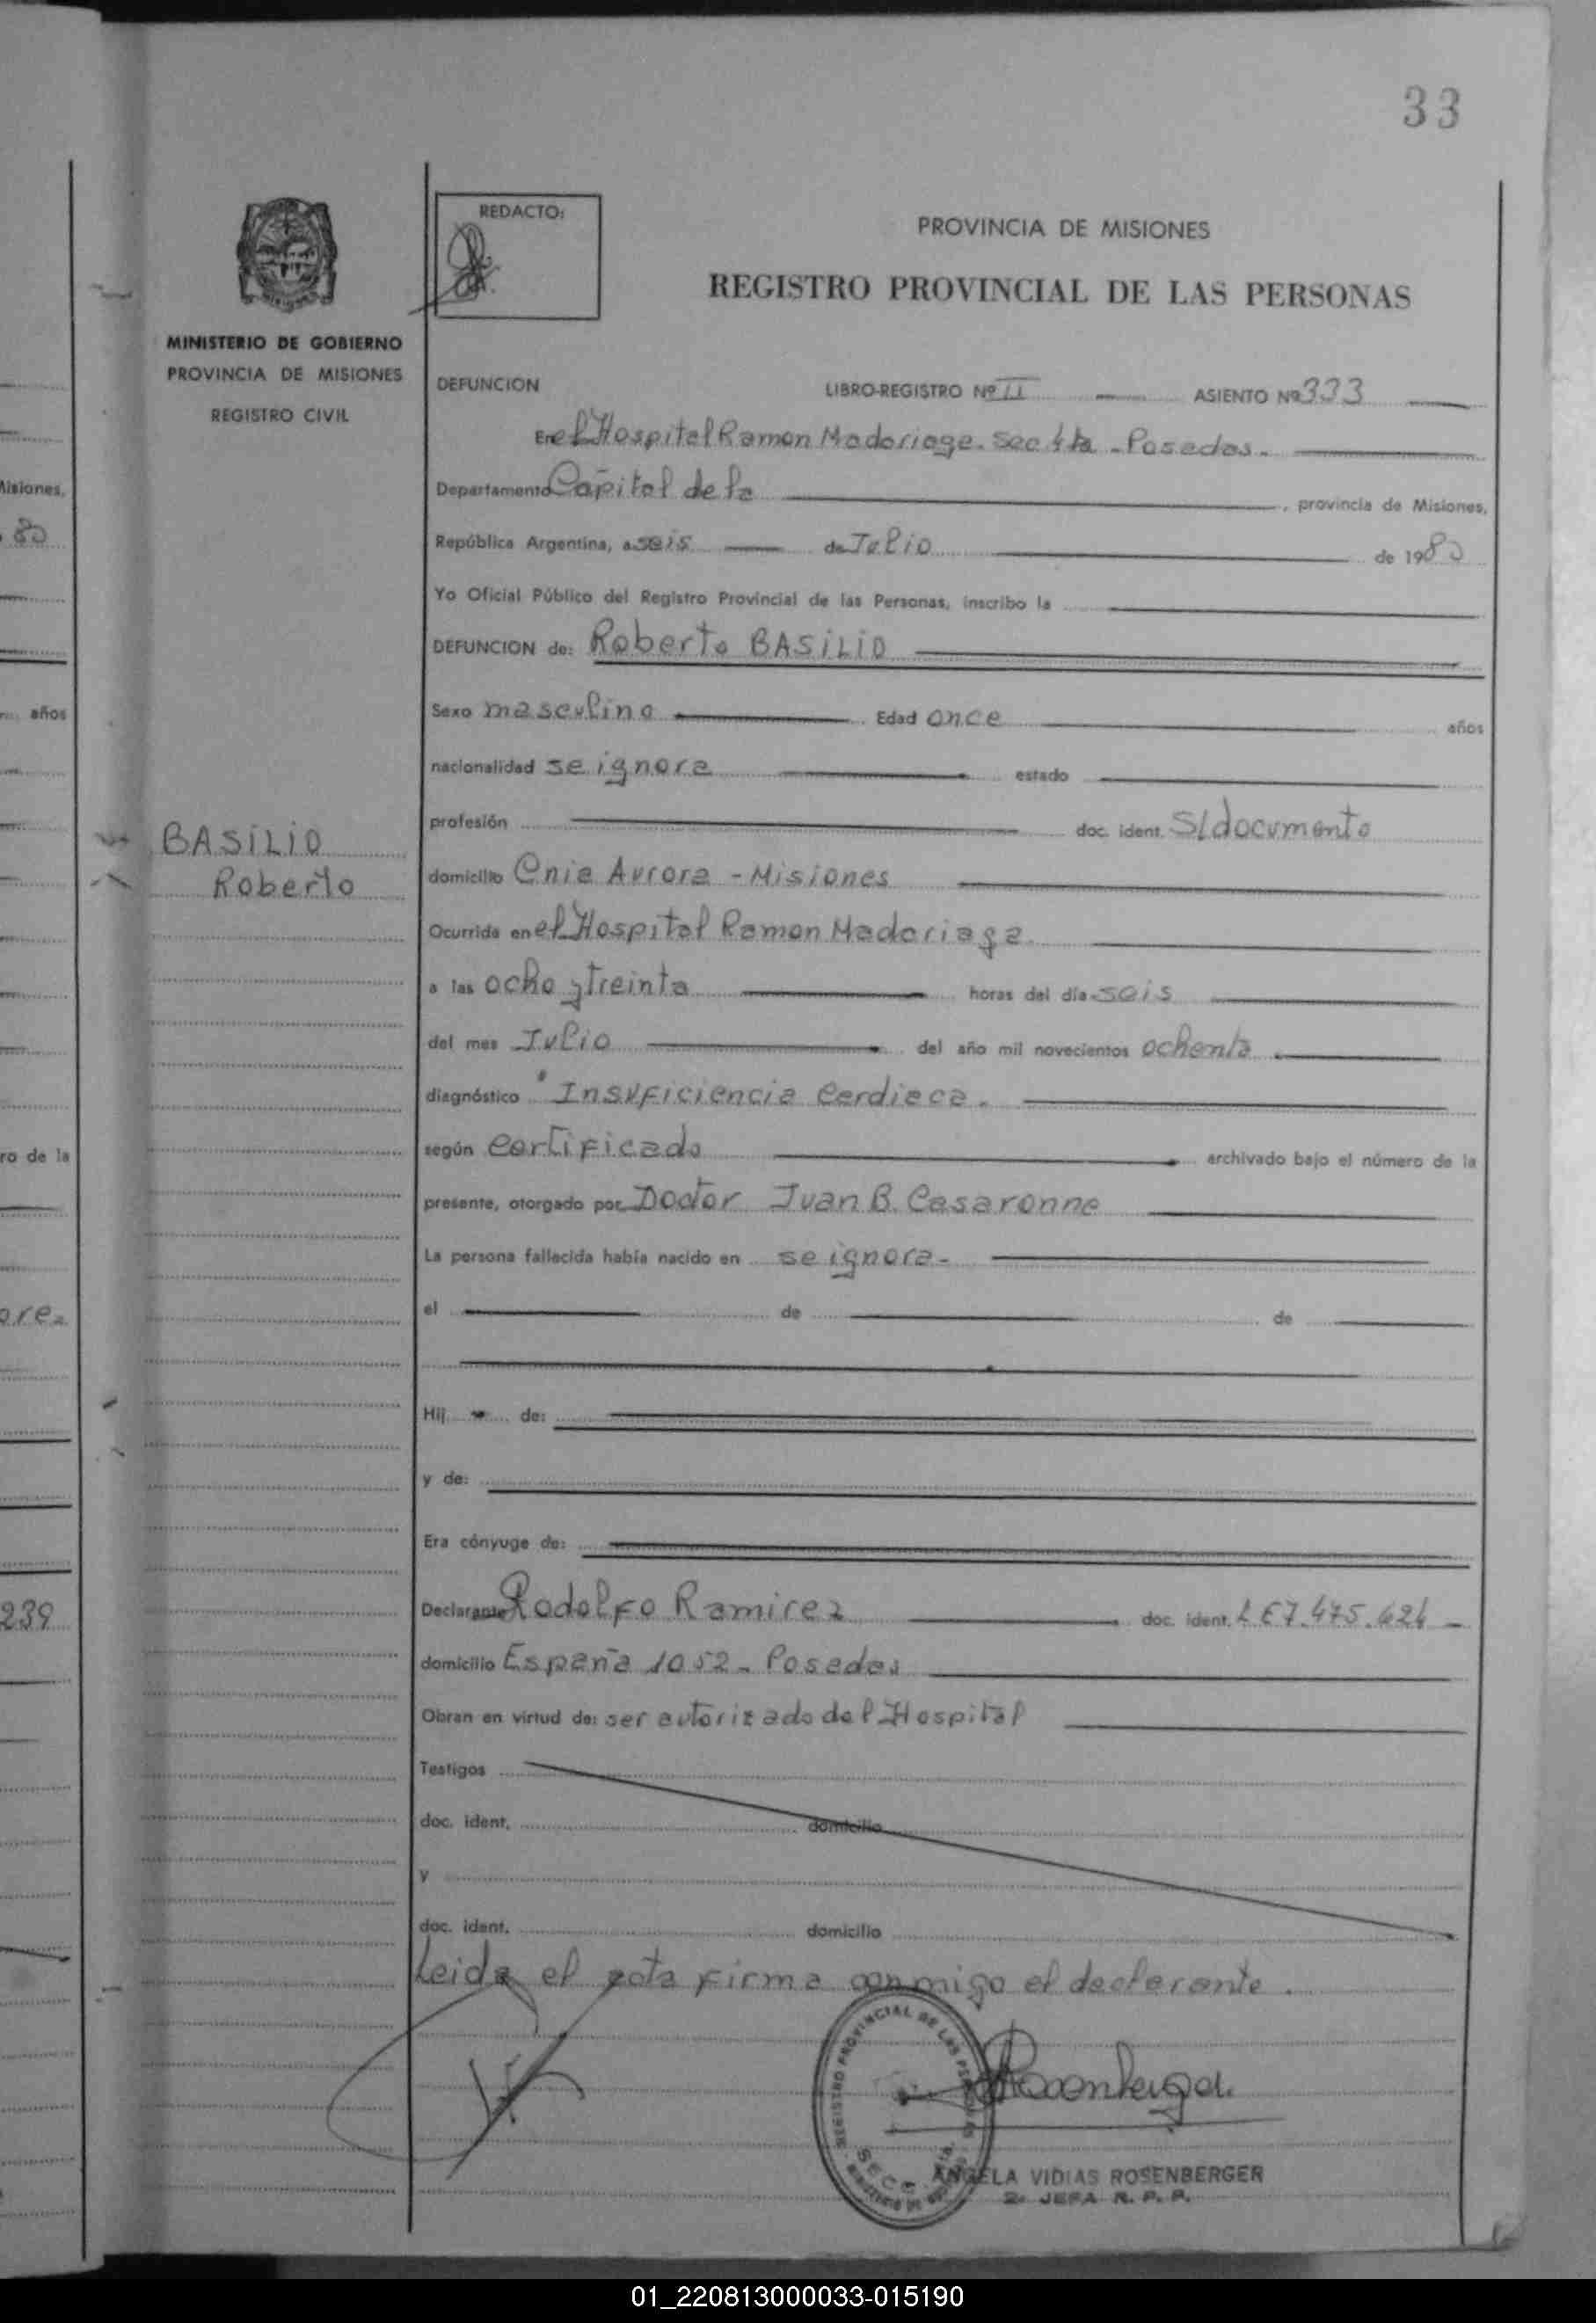 33
REDACTO:
PROVINCIA DE MISIONES
REGISTRO PROVINCIAL DE LAS PERSONAS
MINISTERIO DE GOBIERNO
PROVINCIA DE MISIONES
REGISTRO CIVIL
DEFUNCION LIBRO-REGISTRO Nº II ASIENTO Nº 333
En el Hospital Ramon Madariaga. Sec 4ta - Posadas.
Departamento Capital de la , provincia de Misiones,
República Argentina, a seis de Julio de 1980
Yo Oficial Público del Registro Provincial de las Personas, inscribo la
DEFUNCION de: Roberto BASILIO
Sexo masculino Edad once años
nacionalidad se ignora estado
profesión doc. ident. S/documento
BASILIO
Roberto
domicilio Cnia Aurora - Misiones
Ocurrida en el Hospital Ramon Madariaga
a las ocho y treinta horas del día seis
del mes Julio del año mil novecientos ochenta
diagnóstico Insuficiencia Cardiaca.
según Certificado archivado bajo el número de la
presente, otorgado por Doctor Juan B. Casaronne
La persona fallecida había nacido en se ignora-
el de de
Hij de:
y de:
Era cónyuge de:
Declarante Rodolfo Ramirez doc. ident. LE 7.475.624
domicilio España 1052 - Posadas
Obran en virtud de: ser autorizado del Hospital
Testigos
doc. ident. domicilio
y
doc. ident. domicilio
Leida el acta firma conmigo el declarante.
REGISTRO PROVINCIAL DE LAS PERSONAS
Rosenberger
ANGELA VIDIAS ROSENBERGER
2º JEFA R. P. P.
Misiones,
80
años
ro de la
239
01_220813000033-015190